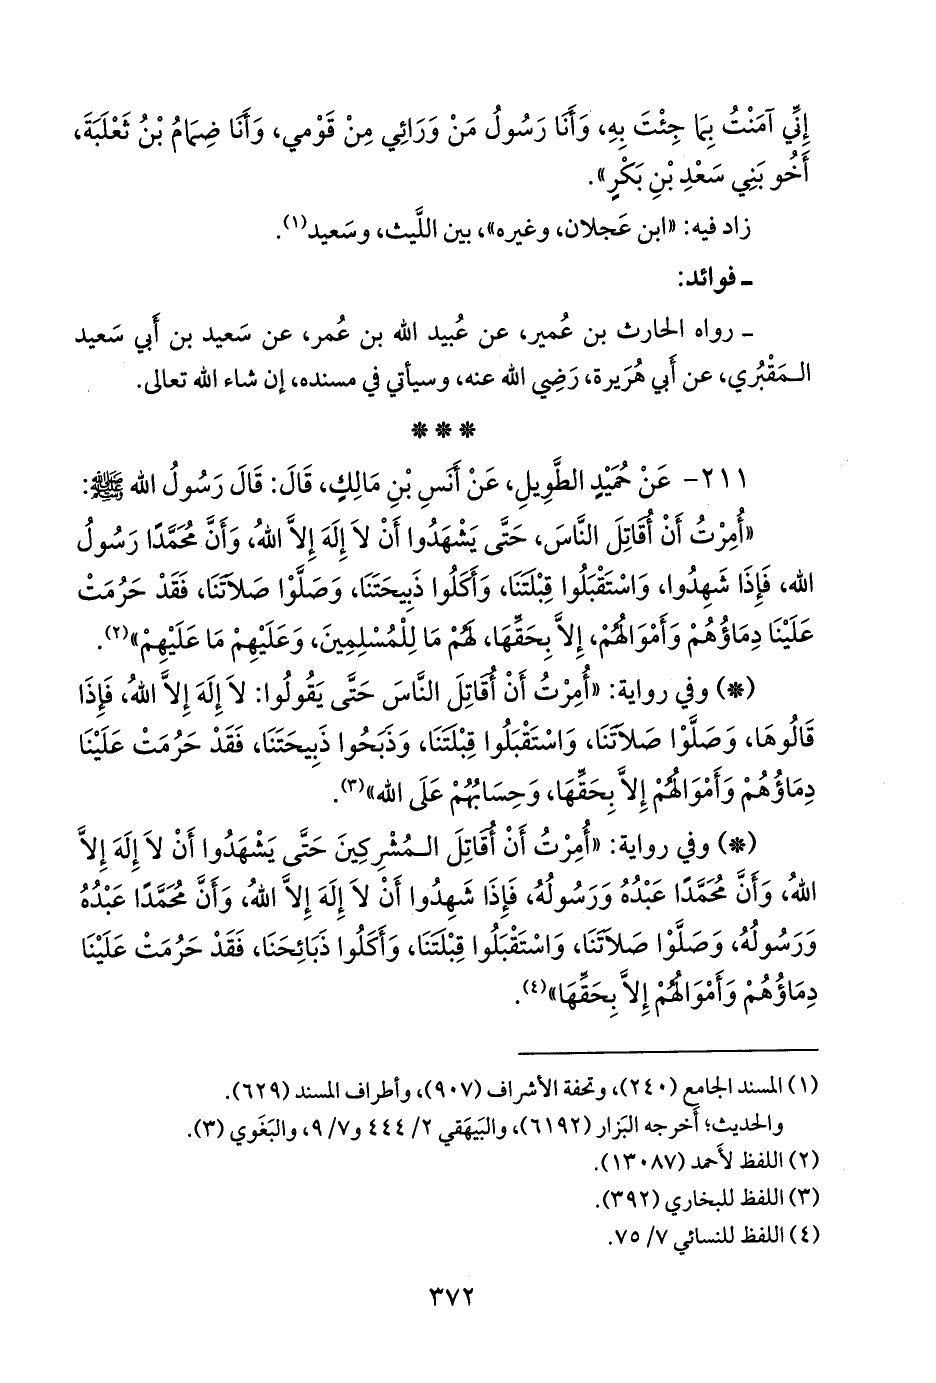 إِنِّي آمَنْتُ بِمَا جِئْتَ بِهِ، وَأَنَا رَسُولُ مَنْ وَرَائِي مِنْ قَوْمِي، وَأَنَا ضِمَامُ بْنُ ثَعْلَبَةَ،
أَخُو بَنِي سَعْدِ بْنِ بَكْرٍ».
زاد فيه: «ابن عَجلان، وغيره»، بين اللَّيث، وسَعيد(١).
ـ فوائد:
ـ رواه الحارث بن عُمير، عن عُبيد الله بن عُمر، عن سَعيد بن أَبي سَعيد
الـمَقْبُري، عن أَبي هُرَيرة، رَضِي الله عنه، وسيأتي في مسنده، إن شاء الله تعالى.
* * *
٢١١- عَنْ حُمَيْدٍ الطَّوِيلِ، عَنْ أَنَسِ بْنِ مَالِكٍ، قَالَ: قَالَ رَسُولُ الله ﷺ:
«أُمِرْتُ أَنْ أُقَاتِلَ النَّاسَ، حَتَّى يَشْهَدُوا أَنْ لاَ إِلَهَ إِلاَّ اللهُ، وَأَنَّ مُحَمَّدًا رَسُولُ
الله، فَإِذَا شَهِدُوا، وَاسْتَقْبَلُوا قِبْلَتَنَا، وَأَكَلُوا ذَبِيحَتَنَا، وَصَلَّوْا صَلاَتَنَا، فَقَدْ حَرُمَتْ
عَلَيْنَا دِمَاؤُهُمْ وَأَمْوَالُهُمْ، إِلاَّ بِحَقِّهَا، لَهُمْ مَا لِلْمُسْلِمِينَ، وَعَلَيْهِمْ مَا عَلَيْهِمْ»(٢).
(*) وفي رواية: «أُمِرْتُ أَنْ أُقَاتِلَ النَّاسَ حَتَّى يَقُولُوا: لاَ إِلَهَ إِلاَّ اللهُ، فَإِذَا
قَالُوهَا، وَصَلَّوْا صَلاَتَنَا، وَاسْتَقْبَلُوا قِبْلَتَنَا، وَذَبَحُوا ذَبِيحَتَنَا، فَقَدْ حَرُمَتْ عَلَيْنَا
دِمَاؤُهُمْ وَأَمْوَالُهُمْ إِلاَّ بِحَقِّهَا، وَحِسَابُهُمْ عَلَى الله»(٣).
(*) وفي رواية: «أُمِرْتُ أَنْ أُقَاتِلَ الـمُشْرِكِينَ حَتَّى يَشْهَدُوا أَنْ لاَ إِلَهَ إِلاَّ
اللهُ، وَأَنَّ مُحَمَّدًا عَبْدُهُ وَرَسُولُهُ، فَإِذَا شَهِدُوا أَنْ لاَ إِلَهَ إِلاَّ اللهُ، وَأَنَّ مُحَمَّدًا عَبْدُهُ
وَرَسُولُهُ، وَصَلَّوْا صَلاَتَنَا، وَاسْتَقْبَلُوا قِبْلَتَنَا، وَأَكَلُوا ذَبَائِحَنَا، فَقَدْ حَرُمَتْ عَلَيْنَا
دِمَاؤُهُمْ وَأَمْوَالُهُمْ إِلاَّ بِحَقِّهَا»(٤).
(١) المسند الجامع (٢٤٠)، وتحفة الأشراف (٩٠٧)، وأطراف المسند (٦٢٩).
والحديث؛ أَخرجه البَزار (٦١٩٢)، والبَيهَقي ٢/ ٤٤٤ و٧/ ٩، والبَغَوي (٣).
(٢) اللفظ لأَحمد (١٣٠٨٧).
(٣) اللفظ للبخاري (٣٩٢).
(٤) اللفظ للنسائي ٧/ ٧٥.
٣٧٢